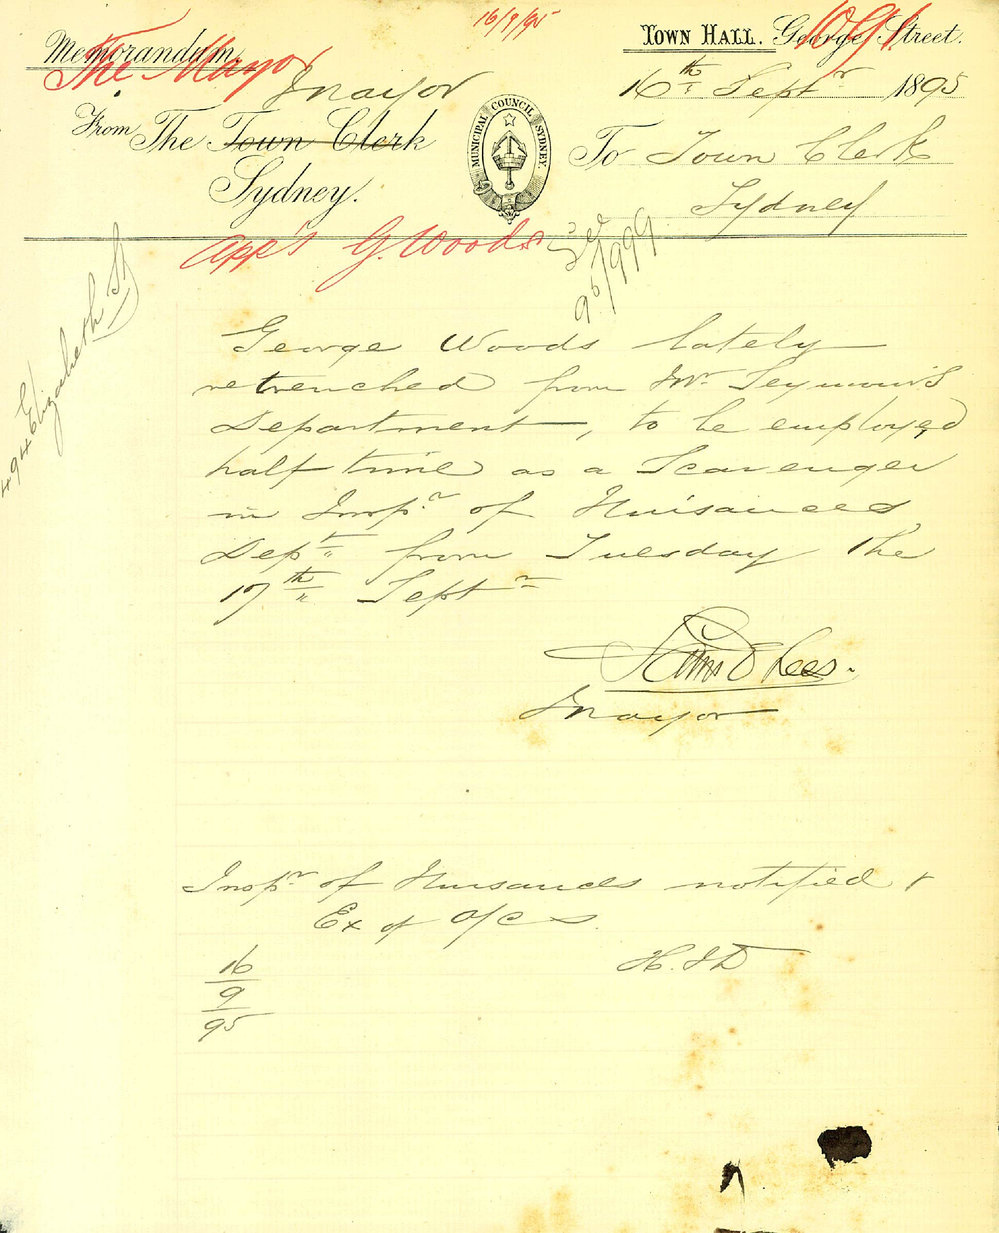 16/9/95
Memorandum
The Mayor
TOWN HALL. George Street.
1091
Mayor
16th Septr 1895
From The Town Clerk
Sydney.
MUNICIPAL COUNCIL SYDNEY.
To Town Clerk
Sydney
App's G. Woods
See
95/1999
494 Elizabeth St
George Woods lately
retrenched from Mr Seymour's
Department, to be employed
half time as a Scavenger
in Inspr of Nuisances
Dept from Tuesday the
17th Septr
Saml E Lees.
Mayor
Inspr of Nuisances notified &
Ex of a/cs.
16
9
95